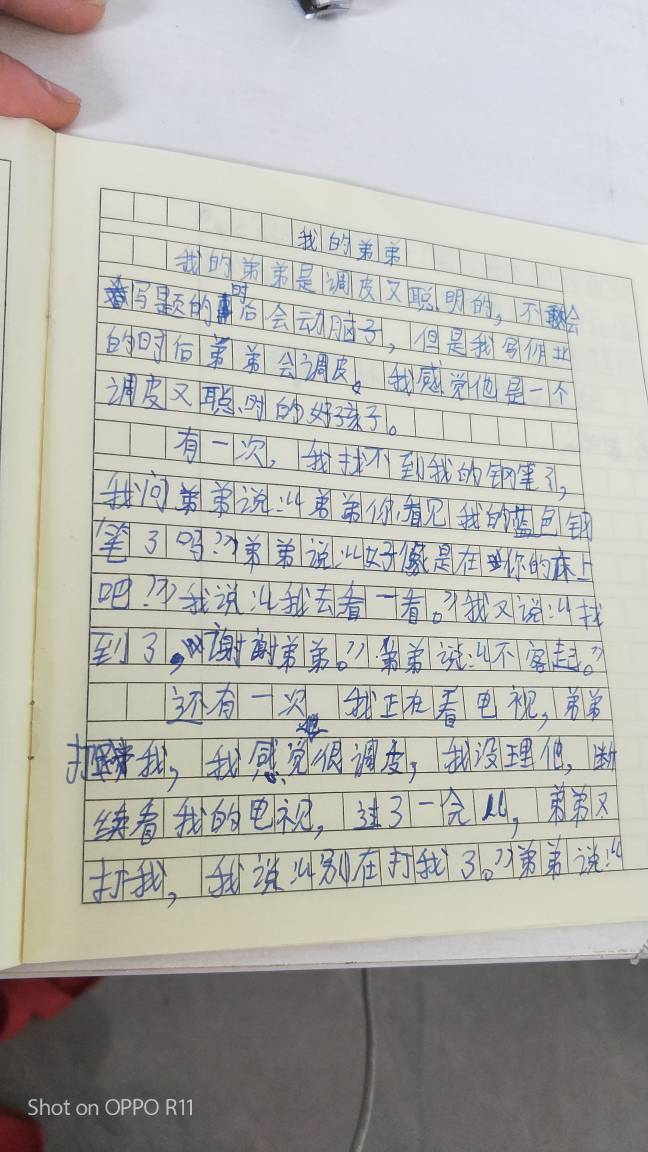 我的弟弟
我的弟弟是调皮又聪明的，不会
写题的时后会动脑子，但是我写作业
的时后弟弟会调皮。我感觉他是一个
调皮又聪明的好孩子。
有一次，我找不到我的钢笔了，
我问弟弟说：“弟弟你看见我的蓝色钢
笔了吗？”弟弟说：“好像是在你的床上
吧？”我说：“我去看一看。”我又说：“找
到了，谢谢弟弟。”弟弟说：“不客起。”
还有一次 我正在看电视，弟弟
打我，我感觉他很调皮，我没理他，继
续看我的电视，过了一会儿，弟弟又
打我，我说：“别在打我了。”弟弟说：“
Shot on OPPO R11